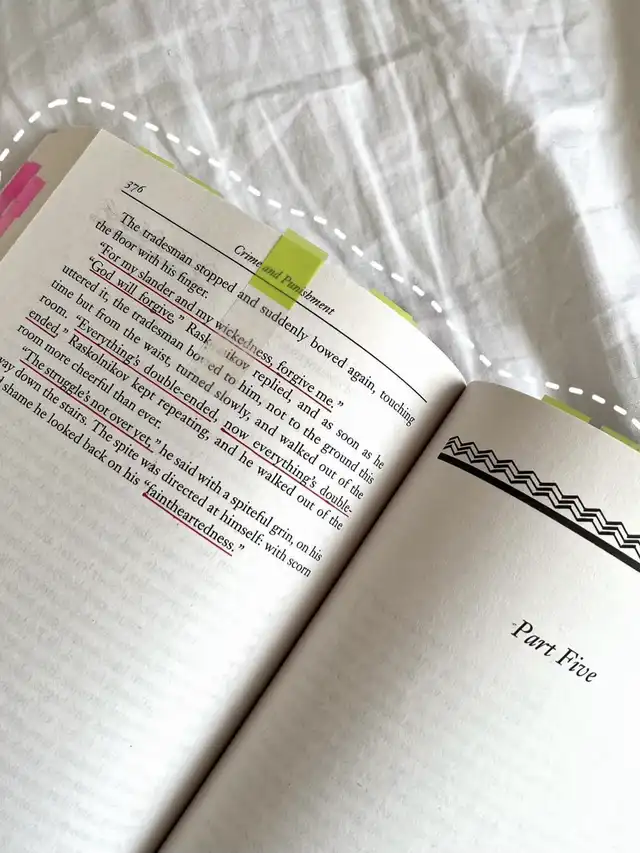 376
Crime and Punishment
The tradesman stopped and suddenly bowed again, touching
the floor with his finger.
“For my slander and my wickedness, forgive me.”
“God will forgive,” Raskolnikov replied, and as soon as he
uttered it, the tradesman bowed to him, not to the ground this
time but from the waist, turned slowly, and walked out of the
room. “Everything’s double-ended, now everything’s double-
ended,” Raskolnikov kept repeating, and he walked out of the
room more cheerful than ever.
“The struggle’s not over yet,” he said with a spiteful grin, on his
way down the stairs. The spite was directed at himself: with scorn
and shame he looked back on his “faintheartedness.”
Part Five